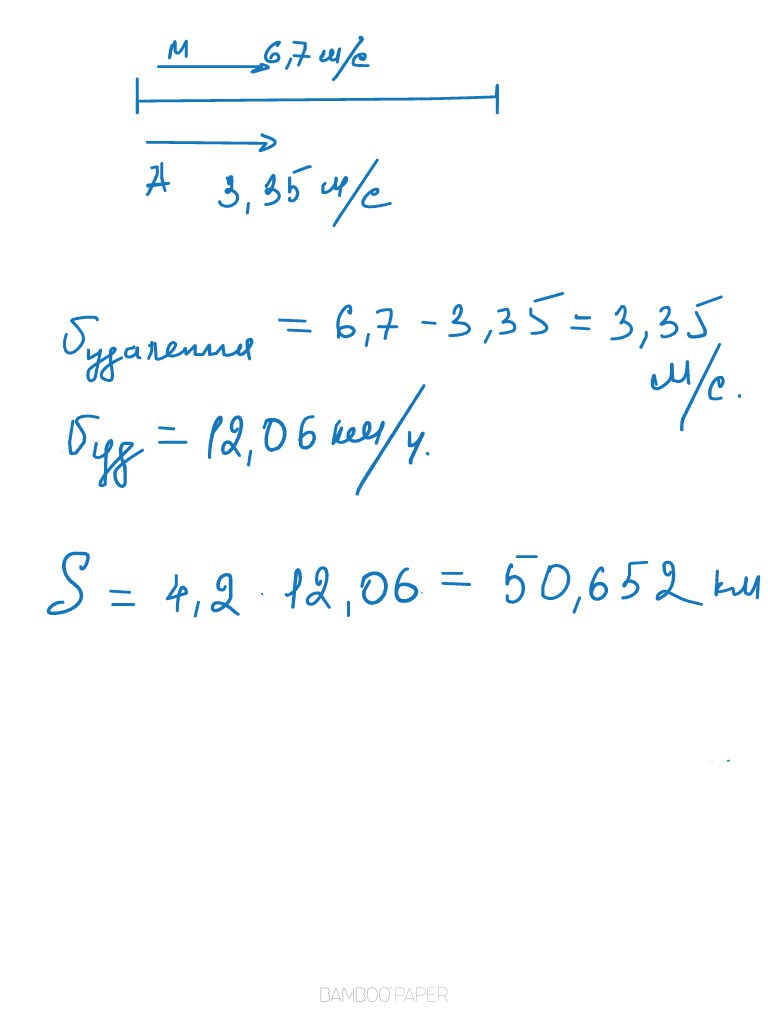 М 6,7 м/с
А 3,35 м/с
υудаления = 6,7 - 3,35 = 3,35
м/с.
υуд = 12,06 км/ч.
S = 4,2 · 12,06 = 50,652 км
BAMBOO PAPER